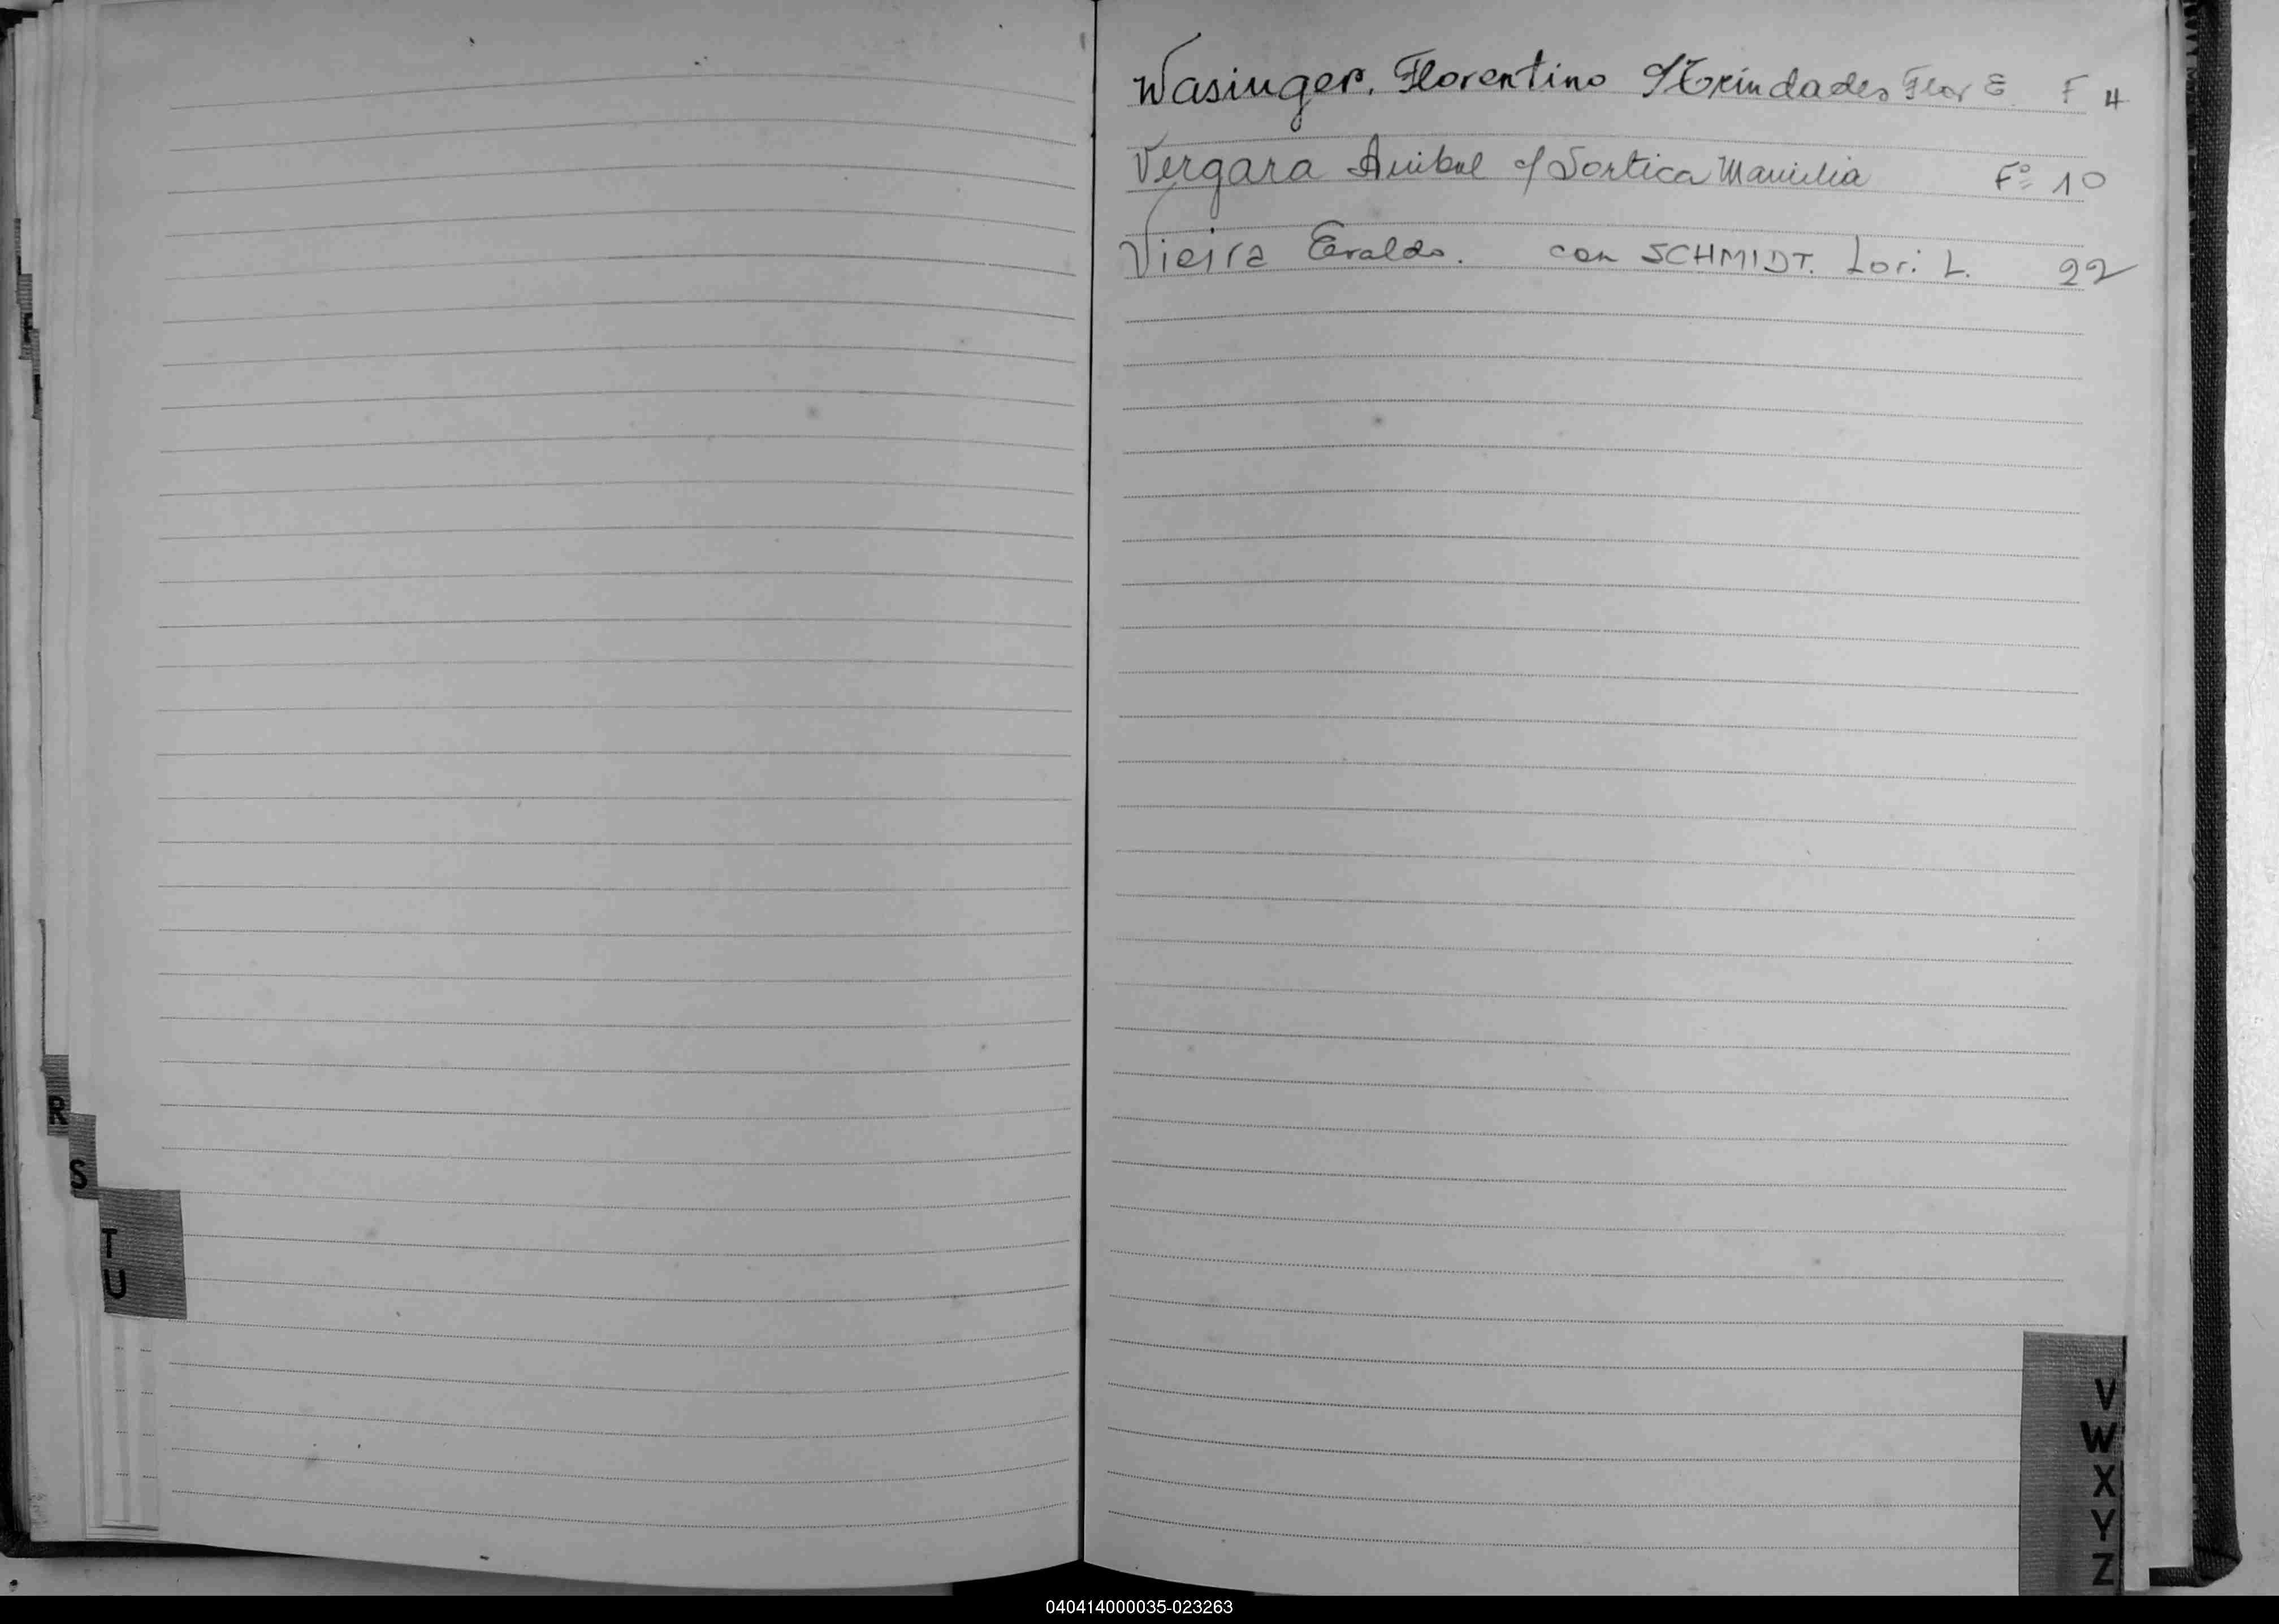 Wasinger. Florentino c/ Trindades Flor E. F 4
Vergara Anibal c/ Sortica Marcilia Fº 10
Vieira Evaldo. con SCHMIDT. Lori L. 22
R
S
T
U
V
W
X
Y
Z
040414000035-023263